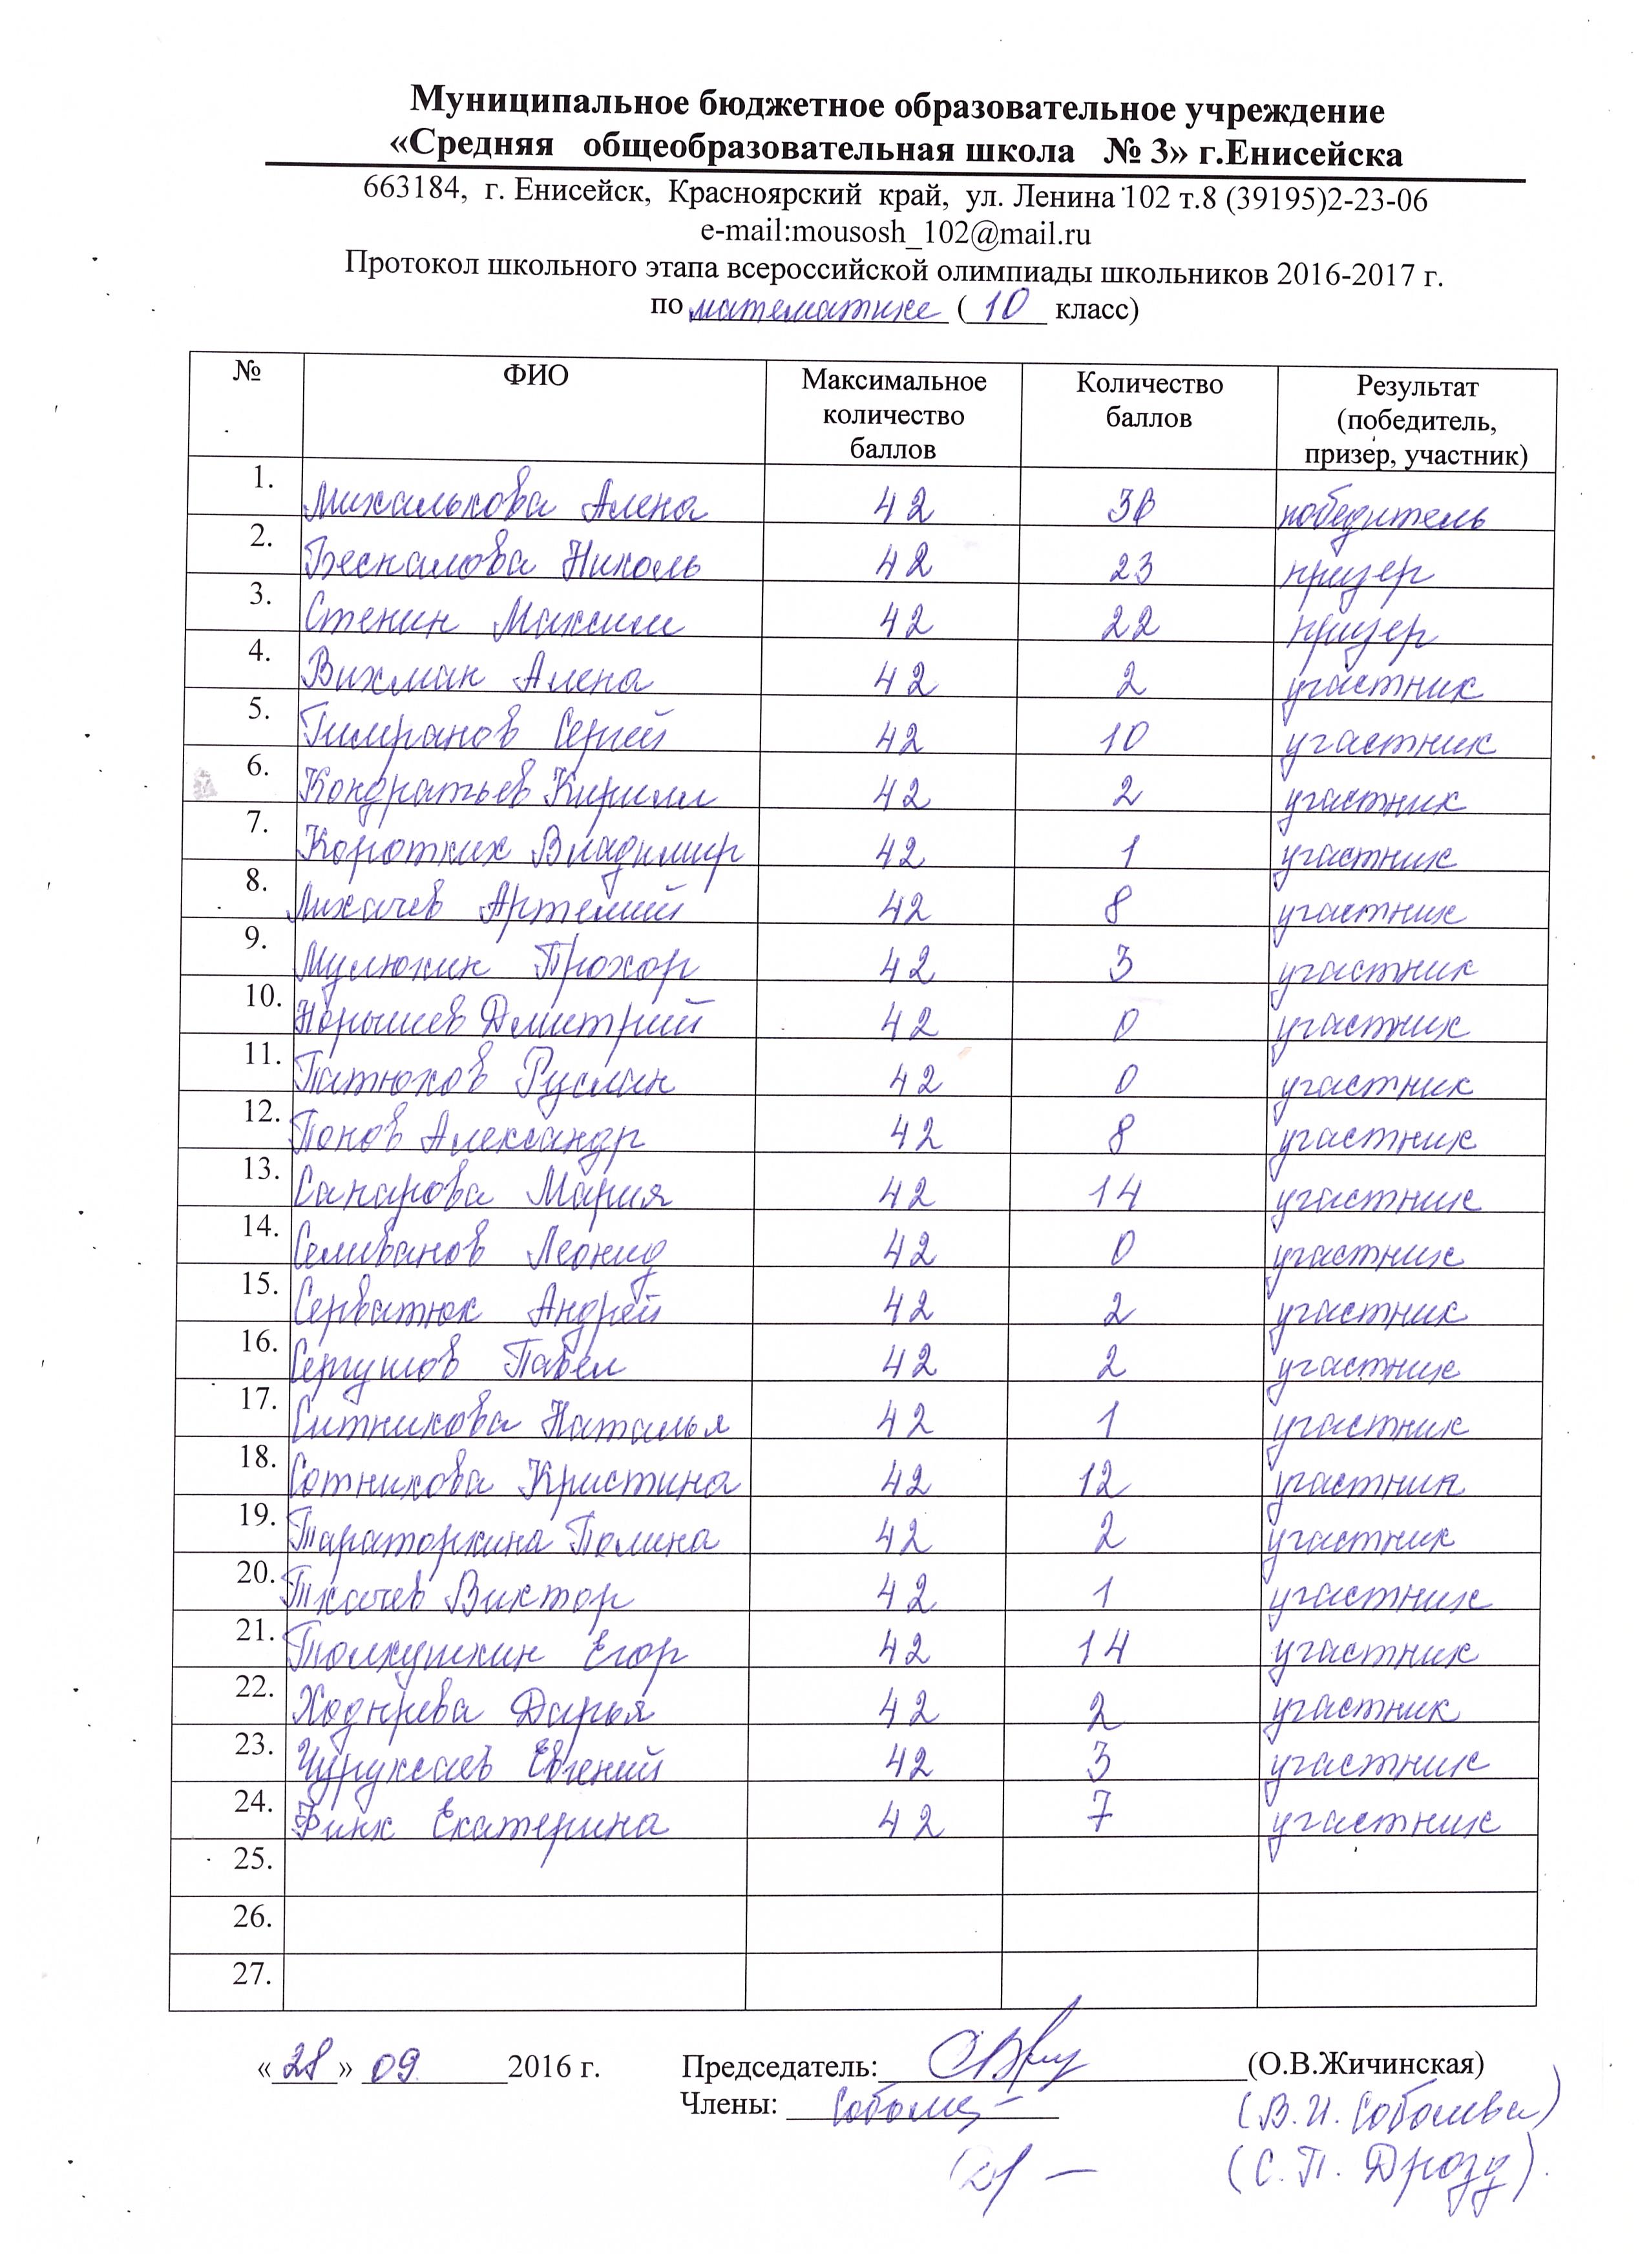 Муниципальное бюджетное образовательное учреждение
«Средняя общеобразовательная школа № 3» г.Енисейска
663184, г. Енисейск, Красноярский край, ул. Ленина 102 т.8 (39195)2-23-06
e-mail:mousosh_102@mail.ru
Протокол школьного этапа всероссийской олимпиады школьников 2016-2017 г.
по математике ( 10 класс)
№ ФИО Максимальное количество баллов Количество баллов Результат (победитель, призер, участник)
1. Михалькова Алена 42 30 победитель
2. Беспалова Николь 42 23 призер
3. Стенин Максим 42 22 призер
4. Вихман Алена 42 2 участник
5. Гимранов Сергей 42 10 участник
6. Кондратьев Кирилл 42 2 участник
7. Коротких Владимир 42 1 участник
8. Лихачев Артемий 42 8 участник
9. Мулюкин Прохор 42 3 участник
10. Дмитрий 42 0 участник
11. Патюков Руслан 42 0 участник
12. Попов Александр 42 8 участник
13. Сапарова Мария 42 14 участник
14. Селиванов Леонид 42 0 участник
15. Серватюк Андрей 42 2 участник
16. Сергушов Павел 42 2 участник
17. Ситникова Наталья 42 1 участник
18. Сотникова Кристина 42 12 участник
19. Тараторкина Полина 42 2 участник
20. Ткачев Виктор 42 1 участник
21. Толкушкин Егор 42 14 участник
22. Дарья 42 2 участник
23. Евгений 42 3 участник
24. Финк Екатерина 42 7 участник
25.
26.
27.
«28» 09 2016 г. Председатель: (О.В.Жичинская)
Члены: (В.И. Соболева)
(С.П. Дрозд).